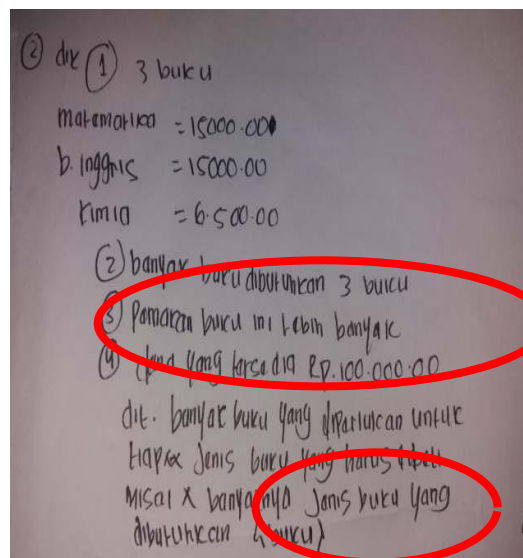 ② dik ① 3 buku
matematika = 15000.00
b. inggris = 15000.00
kimia = 6.500.00
② banyak buku dibutuhkan 3 buku
③ Pamaran buku ini lebih banyak
④ dana yang tersedia RP.100.000.00
dit. banyak buku yang diperlukan untuk
tiap jenis buku yang harus dibeli
Misal X banyaknya Jenis buku yang
dibutuhkan (buku)